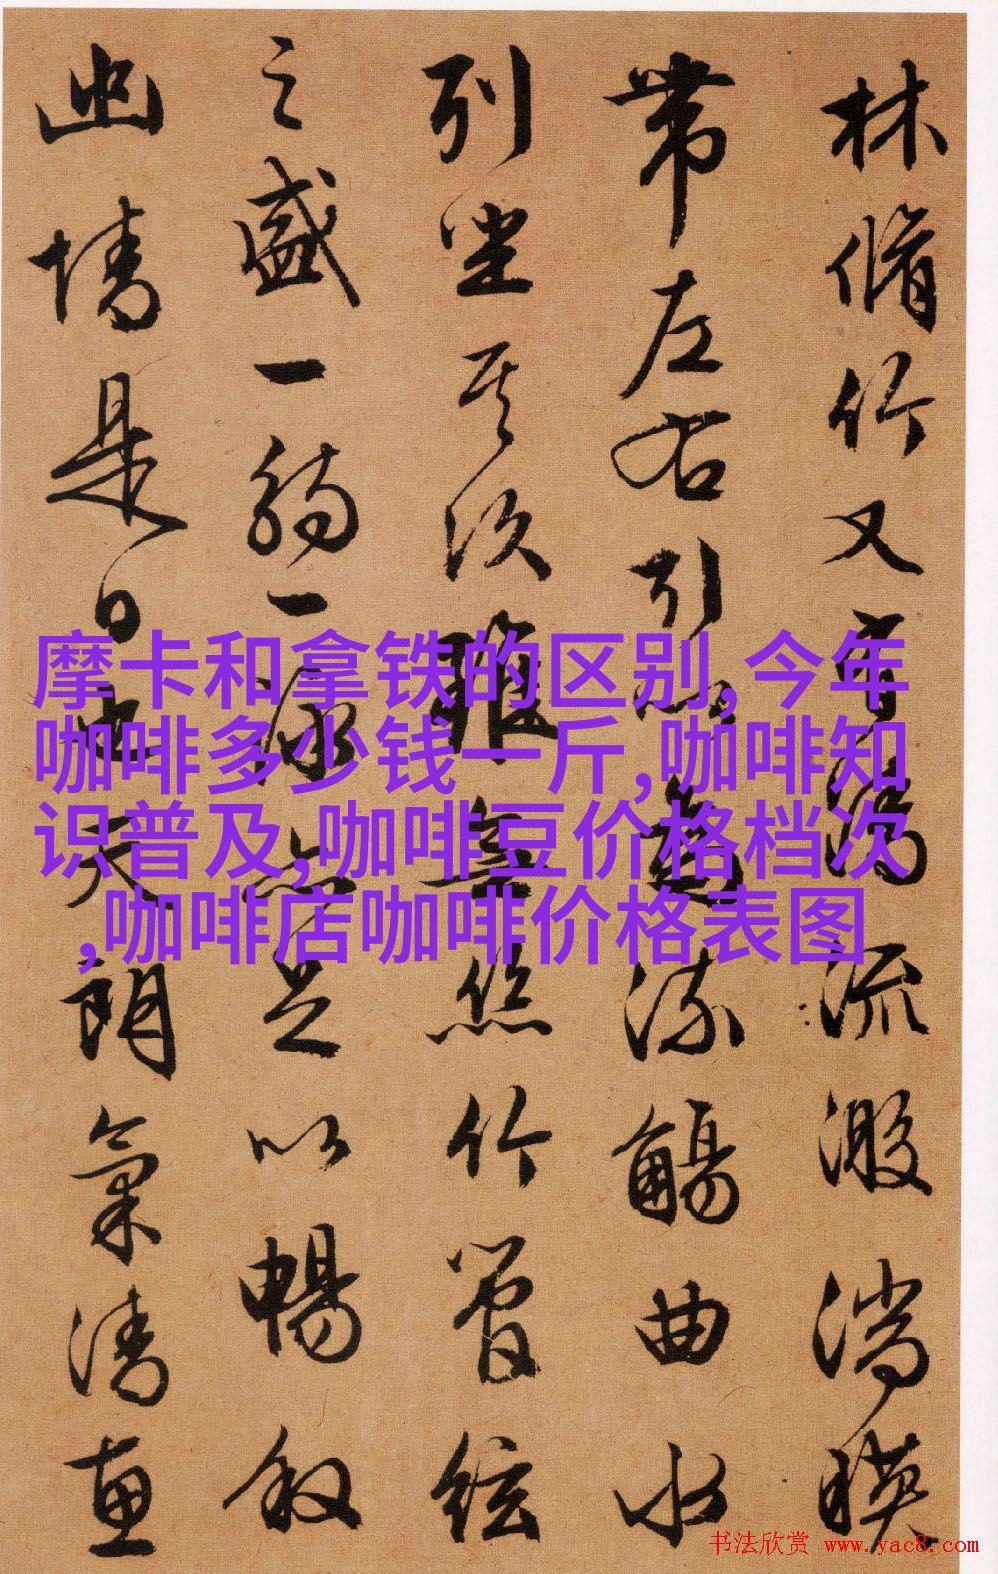 林脩竹又有清流激湍暎
帶左右引以為流觴曲水
列坐其次雖無絲竹管絃
之盛一觴一詠亦足以暢敘
幽情是日也天朗氣清惠
摩卡和拿铁的区别,今年
咖啡多少钱一斤,咖啡知
识普及,咖啡豆价格档次
,咖啡店咖啡价格表图
书法欣赏 www.yac8.com